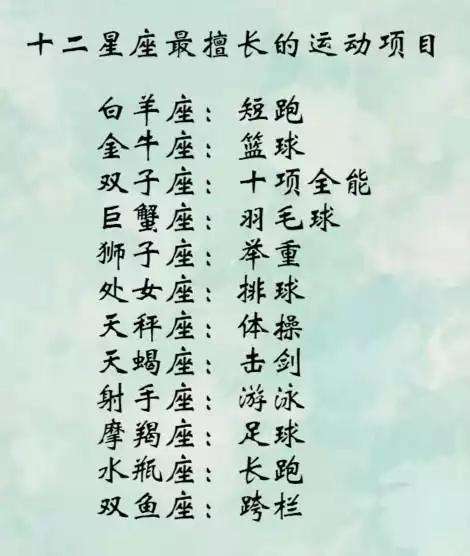 十二星座最擅长的运动项目
白羊座：短跑
金牛座：篮球
双子座：十项全能
巨蟹座：羽毛球
狮子座：举重
处女座：排球
天秤座：体操
天蝎座：击剑
射手座：游泳
摩羯座：足球
水瓶座：长跑
双鱼座：跨栏